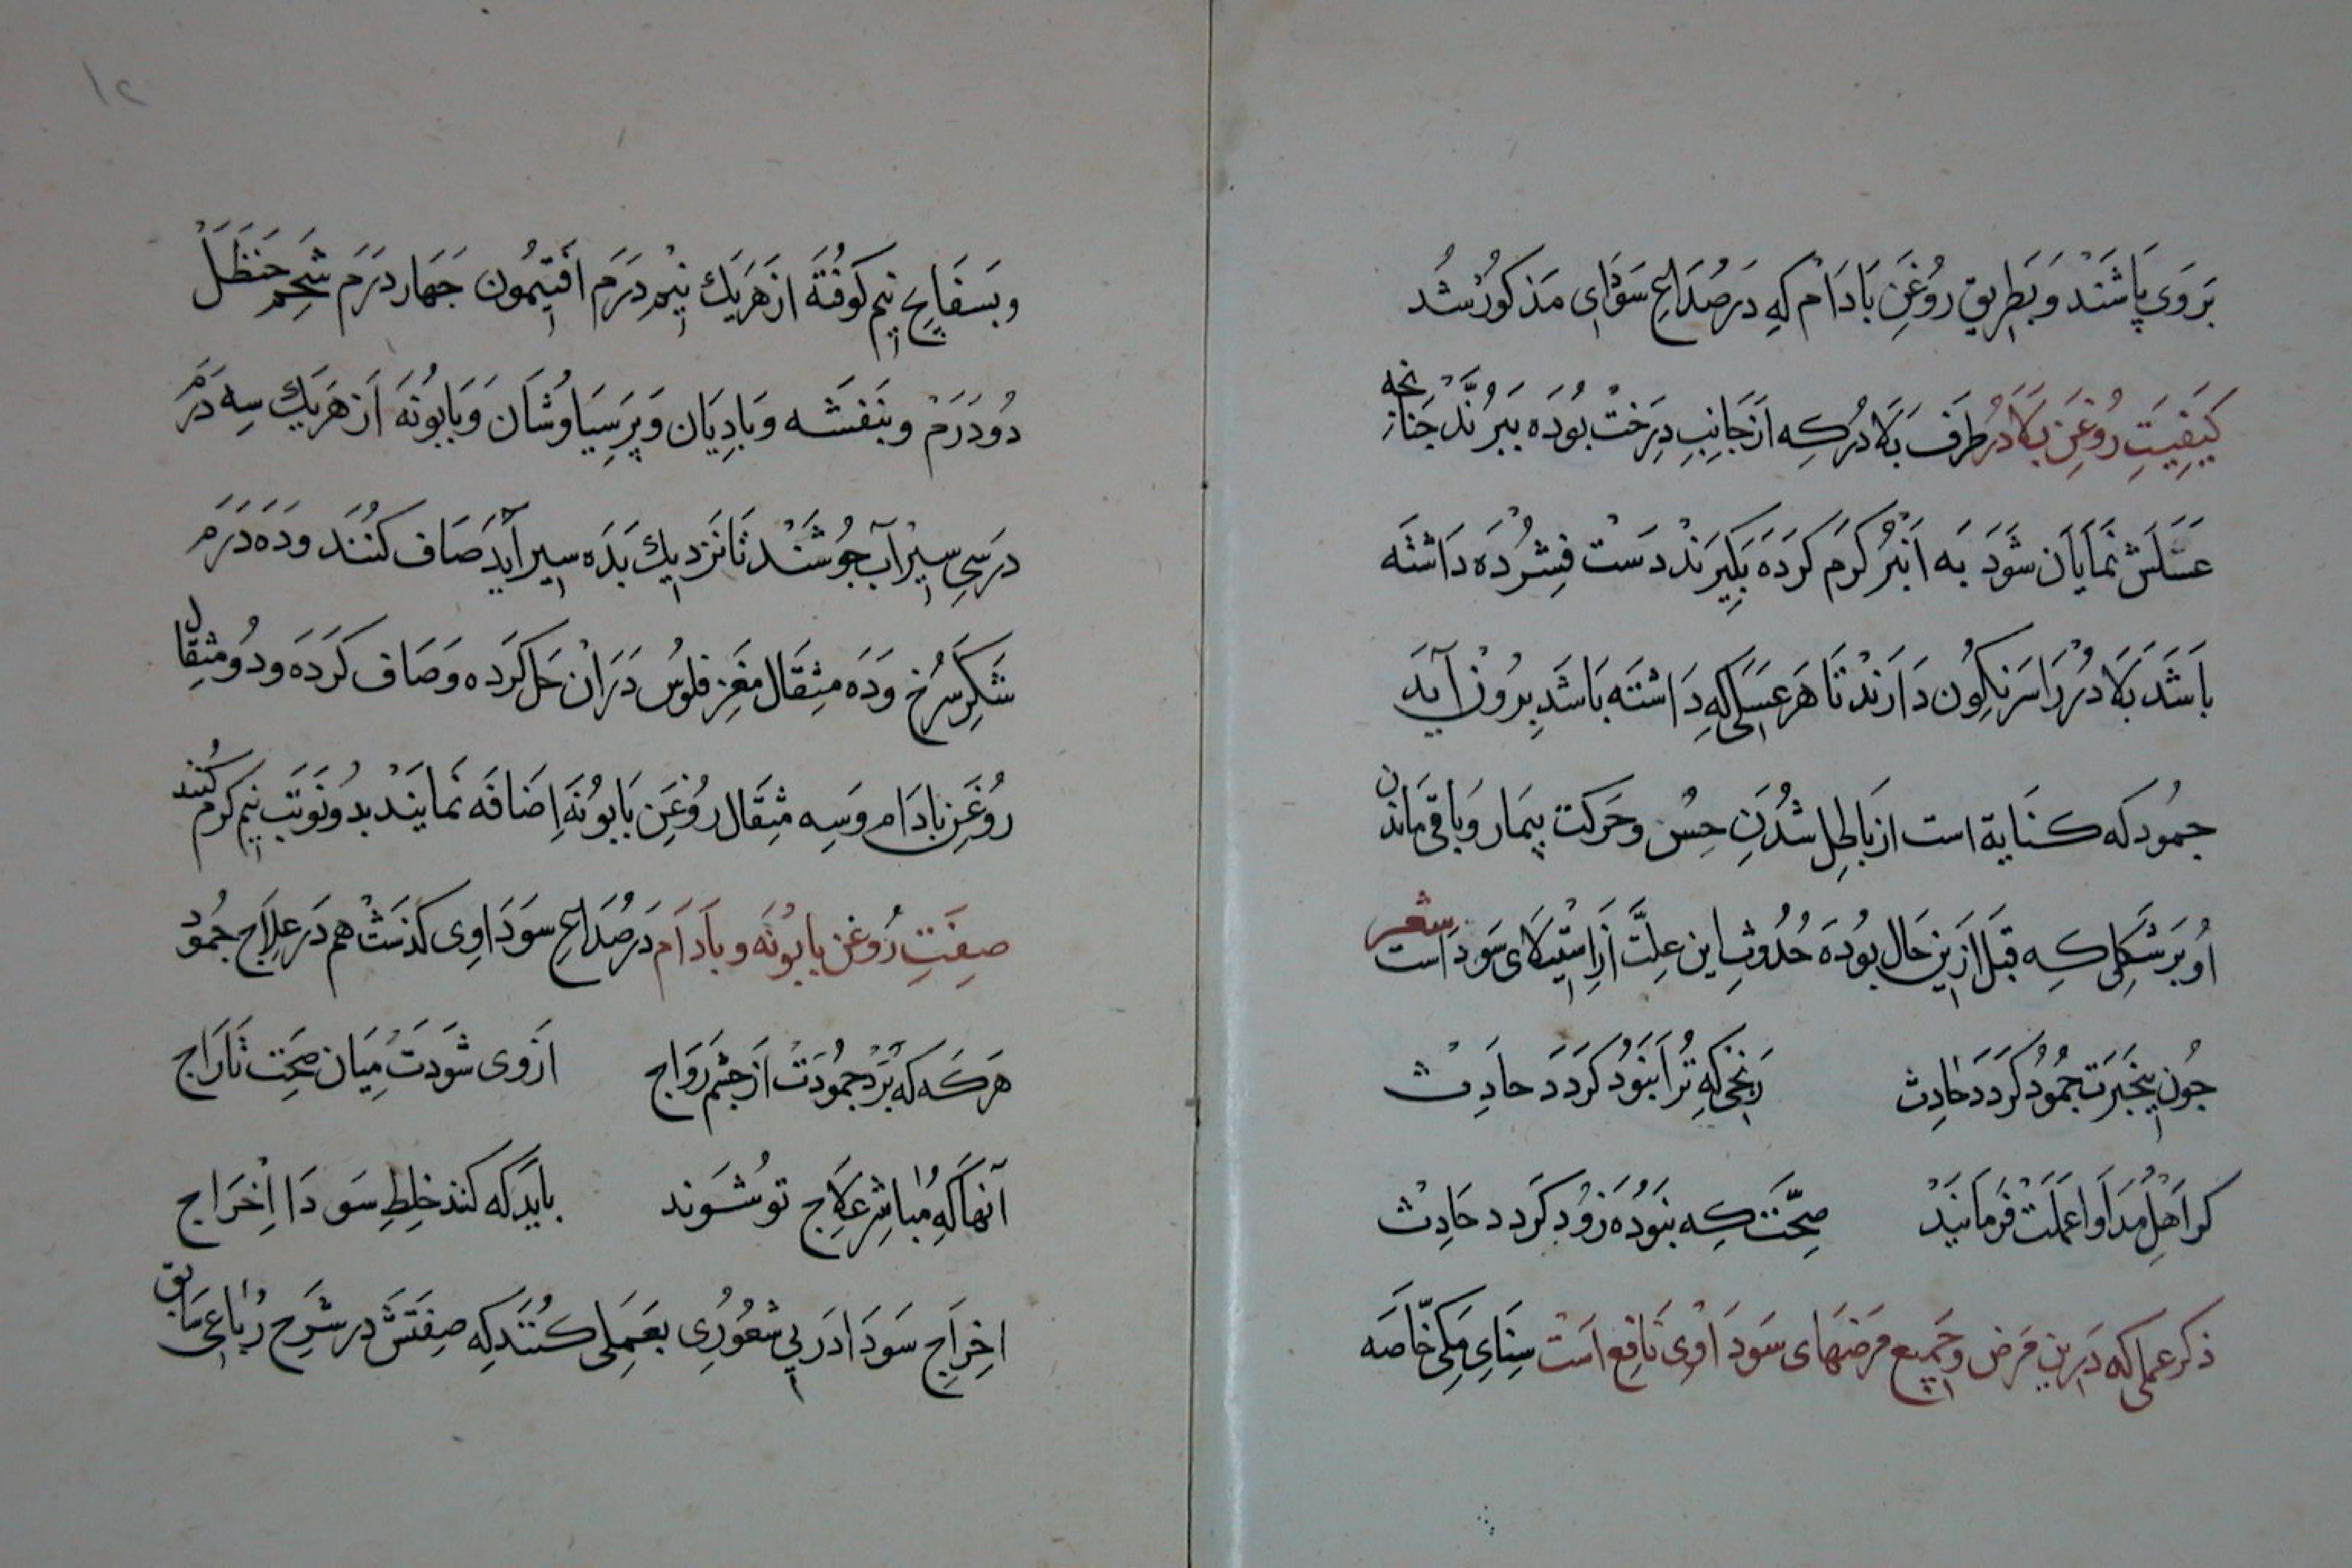 بَرَوی پَاشَنْد وَ بَطَرِیقِ رُوغَنِ بَادَامْ کِه دَرصُدَاعِ سَوْدَاای مَذکُورْشُد
کَیفِیَتِ رُوغَنِ بَلَادُر طَرَف بَلَادُر کِه اَزجَانِبِ دِرَخْت بُودَه بَبرُنَّد جَنَانِجه
عَسَلَش نَمَایَان شَوَد بَه اَنْبُر کَرَم کَردَه بَکِیرَند دَسْت فِشُرْدَه دَاشتَه
بَاشَد بَلَادُررَا سَرنِکُون دَارَند تَا هَر عَسَلی کِه دَاشتَه بَاشَد بِرُون آیَد
جمُود که کنَایة است از بَاطِل شُدَنِ حِسّ وحَرکَت بیمَار وَ بَاقی مَاندن
اُو بَر شَکلِی کِه قبَل اَزین حَال بُودَه حُدُوثِ این عِلَّت اَز اِستِیلَای سَودَاست شعر
جُون بیخَبَرَت جمُود کَردَد حَادِث رَنجی کِه تُرا نَبُود کَردَد حَادِث
کر اَهلِ مُدَاوَا عَمَلَت فَرمَایَند صِحَّت کِه نَبُودَه زُود کَردَد حَادِث
ذکر عملی که دَرین مَرَض وجَمیع مَرَضهَای سَودَاوِی نَافِع اَست سَنَایِ مَکی خَاصَه
وبَسفَایج نیم کَوفتَه از هَریَك نیم دَرَم اَفتِیمُون جَهَار دَرَم شَحِم حَنظَل
دُودَرَم وبنَفشَه وبَادِیَان وَپَرسِیَاوُشَان وَبَابُونَه اَز هَریَك سِه دَرَم
دَرسِی سیر آب جُوشَند تَا نَزدیك بَدَه سیر آیَد صَاف کنُنَد ودَه دَرَم
شَکَر سُرخ ودَه مِثقَال مَغِز فلُوس دَرَان حَل کَردَه وَصَاف کَردَه ودُو مثقَال
رُوغَنِ بادَام وَسِه مِثقَال رُوغَنِ بَابُونَه اِضَافَه نَمایَند بدُو نَوبَت نیم کَرم کُنند
صِفَتِ رُوغَن بابُونَه وبادَام دَرصُدَاعِ سَودَاوِی کَذَشْت هم دَر عِلَاج جمُود
هَر کَه که بَرَد جمُودَت اَز جِشم رَوَاج اَزوی شَودَت مِیَان صحَّت تَارَاج
آنها کِه مُباشِر عِلَاج تو شَوند بایَد که کنند خِلطِ سَودَا اِخرَاج
اخِرَاج سَودَا دَر بی شعُورِی بعَمَلی کنُنَد که صِفَتَش در شَرح رُبَاعی سَابق
۱۲